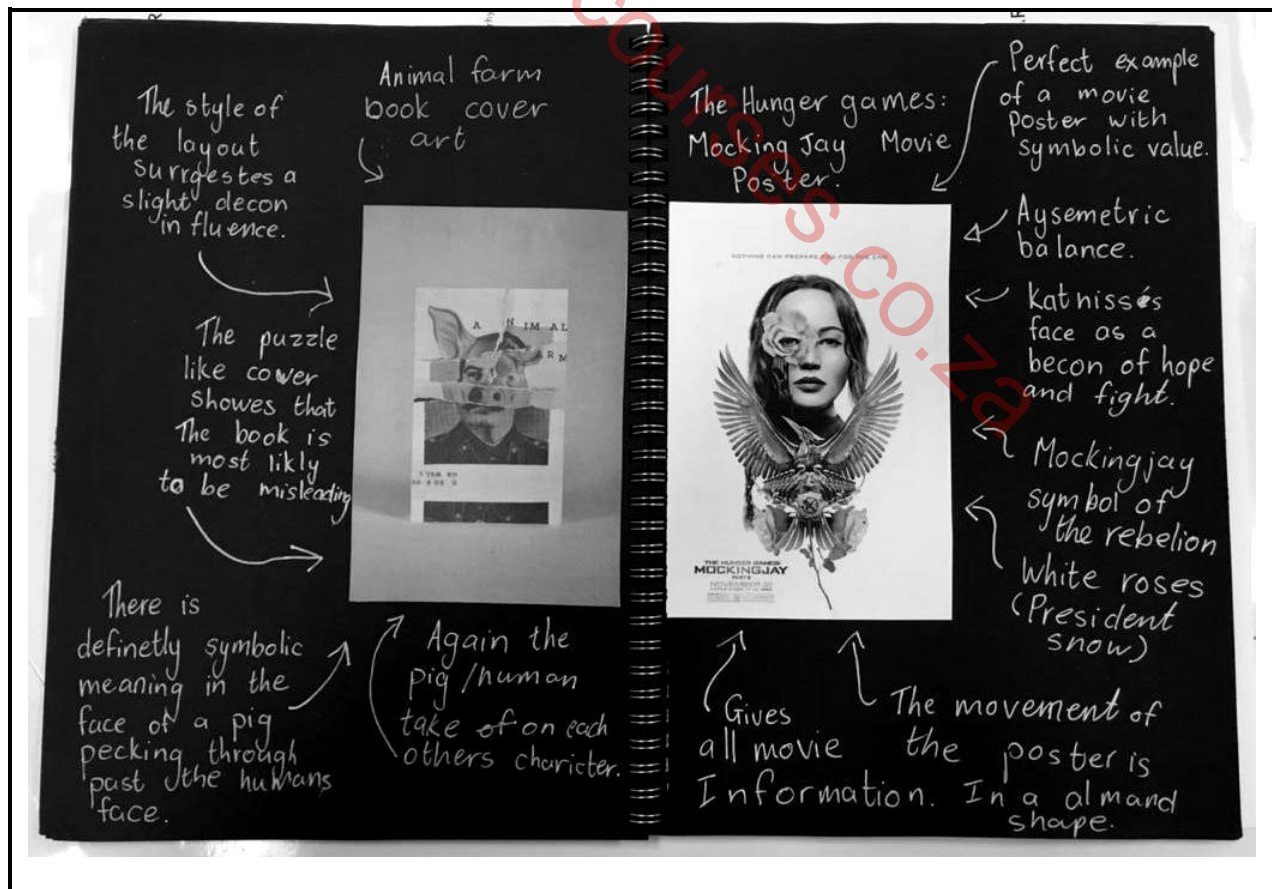 The style of
the layout
surrgestes a
slight decon
influence.
Animal farm
book cover
art
The puzzle
like cower
showes that
The book is
most likly
to be misleading
There is
definetly symbolic
meaning in the
face of a pig
pecking through
past the humans
face.
Again the
pig/human
take of on each
others charicter.
A NIMAL
ARM
The Hunger games:
Mocking Jay Movie
Poster.
Perfect example
of a movie
poster with
symbolic value.
Aysemetric
balance.
Katniss's
face as a
becon of hope
and fight.
Mockingjay
symbol of
the rebelion
White roses
(President
snow)
NOTHING CAN PREPARE YOU FOR THE END
THE HUNGER GAMES
MOCKINGJAY
Gives
all movie
Information.
The movement of
the poster is
In a almand
shape.
courses.co.za